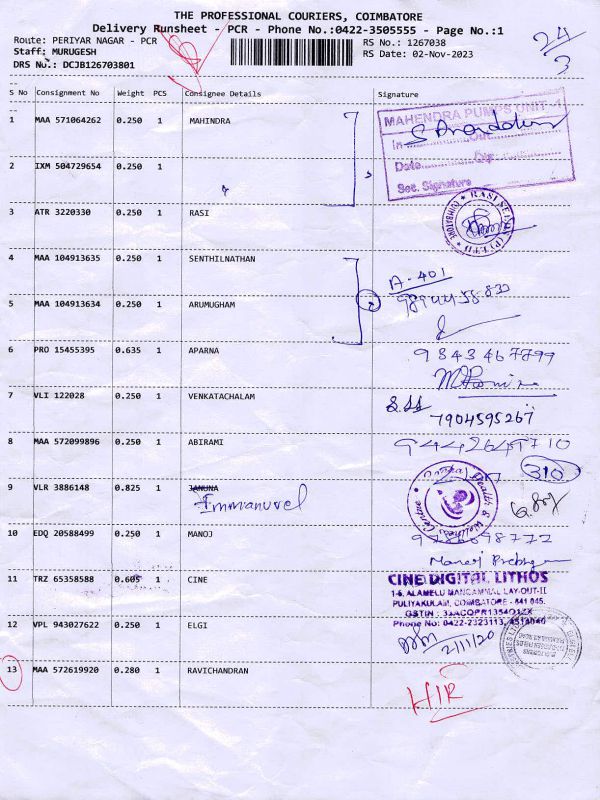 THE PROFESSIONAL COURIERS, COIMBATORE
Delivery Runsheet - PCR - Phone No.:0422-3505555 - Page No.:1
Route: PERIYAR NAGAR - PCR
RS No.: 1267038
24/3
Staff: MURUGESH
RS Date: 02-Nov-2023
DRS No.: DCJB126703801
S No Consignment No Weight PCS Consignee Details Signature
1 MAA 571064262 0.250 1 MAHINDRA
MAHENDRA PUMPS UNIT -1
In Out
Date
Sec. Signature
2 IXM 504729654 0.250 1
3 ATR 3220330 0.250 1 RASI
4 MAA 104913635 0.250 1 SENTHILNATHAN
A-401
5 MAA 104913634 0.250 1 ARUMUGHAM
2
6 PRO 15455395 0.635 1 APARNA
9843467799
7 VLI 122028 0.250 1 VENKATACHALAM
7904595267
8 MAA 572099896 0.250 1 ABIRAMI
310
9 VLR 3886148 0.825 1 JANUNA
Immanuvel
Health & Wellness Centre
10 EDQ 20588499 0.250 1 MANOJ
Manoj
11 TRZ 65358588 0.605 1 CINE
CINE DIGITAL LITHOS
1-6, ALAMELU MANGAMMAL LAY-OUT-II
PULIYAKULAM, COIMBATORE - 641 045.
Phone No: 0422-2323113, 4514040
12 VPL 943027622 0.250 1 ELGI
2/11/20
13 MAA 572619920 0.280 1 RAVICHANDRAN